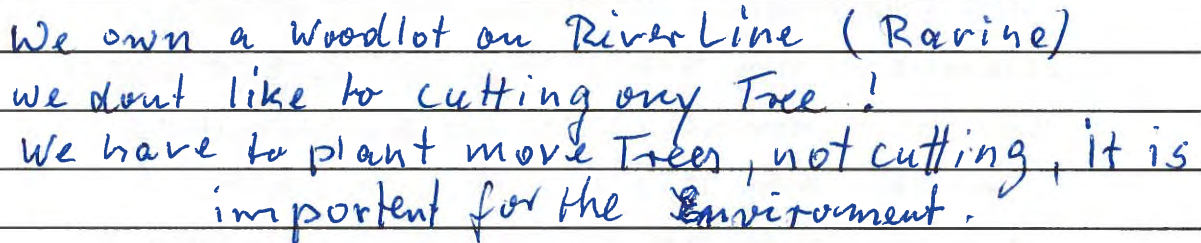 We own a Woodlot on River Line (Ravine)
we dont like to cutting any Tree!
We have to plant more Trees, not cutting, it is
importent for the Enviroment.